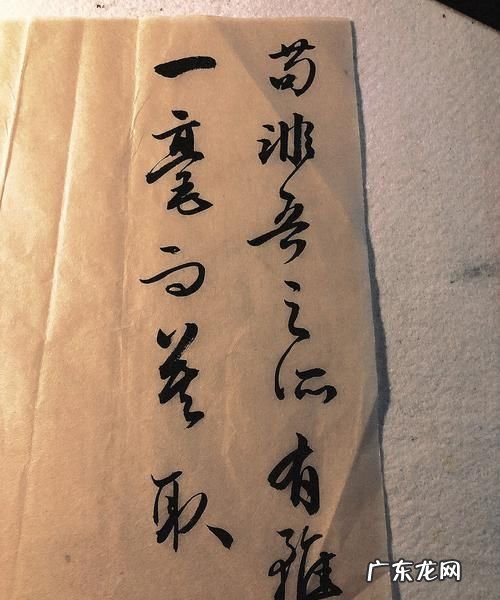 苟非吾之所有雖
一毫而莫取
广东龙网